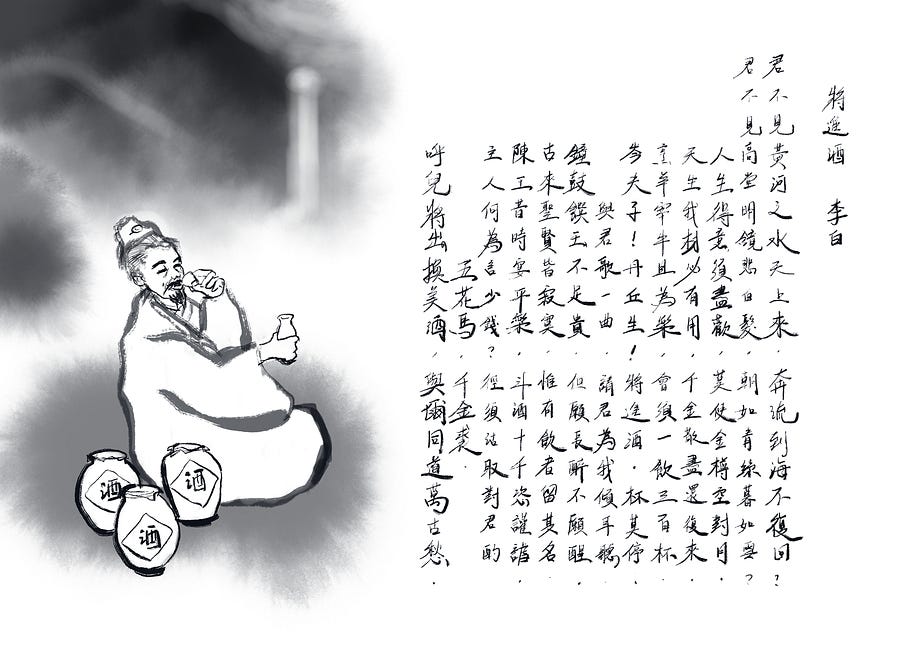 將進酒 李白
君不見黃河之水天上來．奔流到海不復回？
君不見高堂明鏡悲白髮．朝如青絲暮如雪？
人生得意須盡歡．莫使金樽空對月．
天生我材必有用．千金散盡還復來．
烹羊宰牛且為樂．會須一飲三百杯．
岑夫子！丹丘生！將進酒．杯莫停．
與君歌一曲．請君為我傾耳聽．
鐘鼓饌玉不足貴．但願長醉不願醒．
古來聖賢皆寂寞．惟有飲者留其名．
陳王昔時宴平樂．斗酒十千恣讙謔．
主人何為言少錢？徑須沽取對君酌
五花馬．千金裘．
呼兒將出換美酒．與爾同道萬古愁．
酒
酒
酒